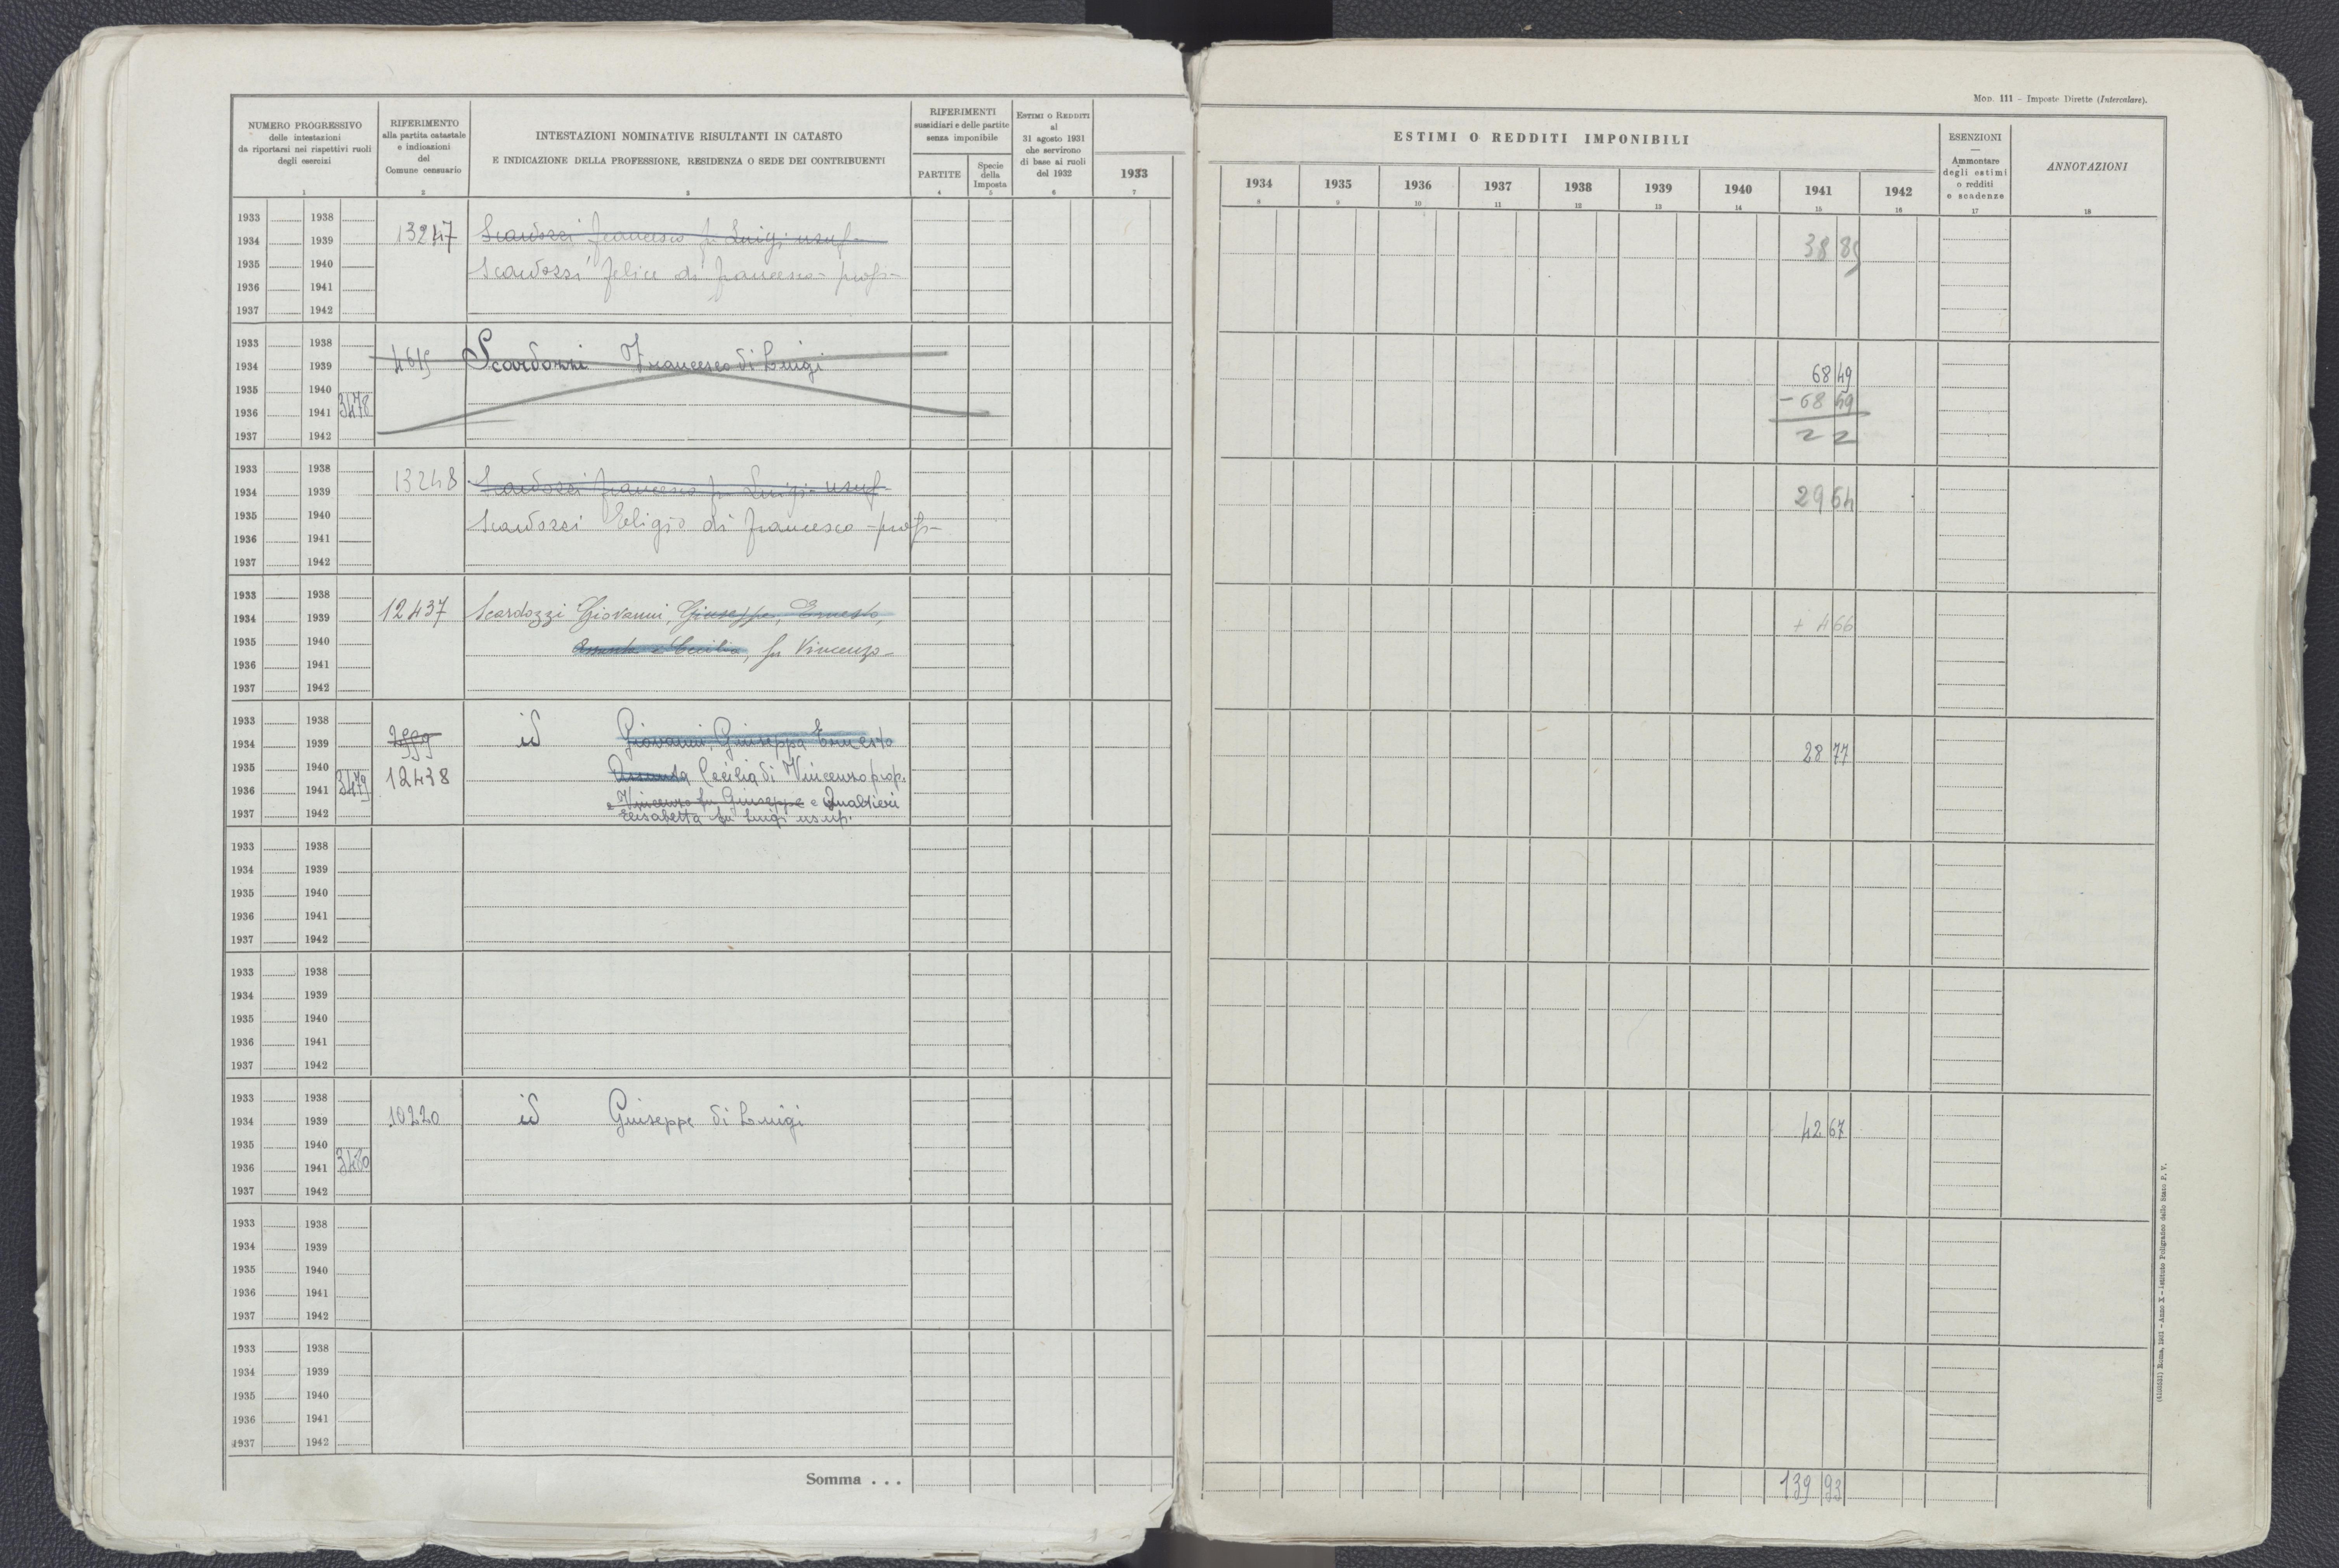 NUMERO PROGRESSIVO
delle intestazioni
da riportarsi nei rispettivi ruoli
degli esercizi
1
RIFERIMENTO
alla partita catastale
e indicazioni
del
Comune censuario
2
INTESTAZIONI NOMINATIVE RISULTANTI IN CATASTO
E INDICAZIONE DELLA PROFESSIONE, RESIDENZA O SEDE DEI CONTRIBUENTI
3
RIFERIMENTI
sussidiari e delle partite
senza imponibile
PARTITE
4
Specie
della
Imposta
5
ESTIMI O REDDITI
al
31 agosto 1931
che servirono
di base ai ruoli
del 1932
6
1933
7
Mod. 111 - Imposte Dirette (Intercalare).
ESTIMI O REDDITI IMPONIBILI
1934 1935 1936 1937 1938 1939 1940 1941 1942
8 9 10 11 12 13 14 15 16
ESENZIONI
—
Ammontare
degli estimi
o redditi
e scadenze
17
ANNOTAZIONI
18
1933 1938
1934 1939 13247 Scardozzi Francesco fu Luigi usuf- 38 85
1935 1940 Scardozzi Felice di Francesco - prop-
1936 1941
1937 1942
1933 1938
1934 1939 4615 Scardozzi Francesco di Luigi 68 49
1935 1940
1936 1941 3478 - 68 49
1937 1942 2 2
1933 1938
1934 1939 13248 Scardozzi Francesco fu Luigi - usuf- 29 64
1935 1940 Scardozzi Eligio di Francesco - prop-
1936 1941
1937 1942
1933 1938
1934 1939 12437 Scardozzi Giovanni, Giuseppa, Ernesto, + 4 66
1935 1940 Assunta e Cecilia, fu Vincenzo -
1936 1941
1937 1942
1933 1938
1934 1939 2999 id Giovanni, Giuseppa Ernesto 28 77
1935 1940 12438 Assunta Cecilia di Vincenzo prop.
1936 1941 3479 e Vincenzo fu Giuseppe e Qualtieri
1937 1942 Elisabetta fu Luigi usuf.
1933 1938
1934 1939
1935 1940
1936 1941
1937 1942
1933 1938
1934 1939
1935 1940
1936 1941
1937 1942
1933 1938
1934 1939 10220 id Giuseppe di Luigi 42 67
1935 1940
1936 1941 3480
1937 1942
1933 1938
1934 1939
1935 1940
1936 1941
1937 1942
1933 1938
1934 1939
1935 1940
1936 1941
1937 1942
Somma . . . 139 93
(4103531) Roma, 1931 - Anno X - Istituto Poligrafico dello Stato P. V.